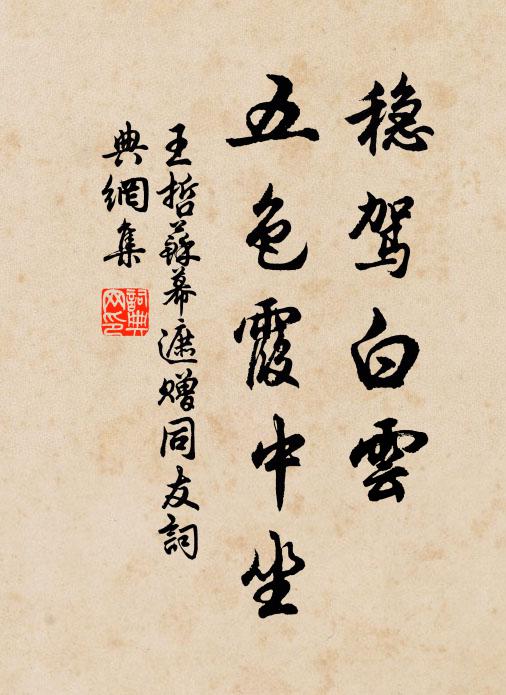 穩駕白雲
五色霞中坐
王哲蘇幕遮贈同友詞
典網集
詞典网印